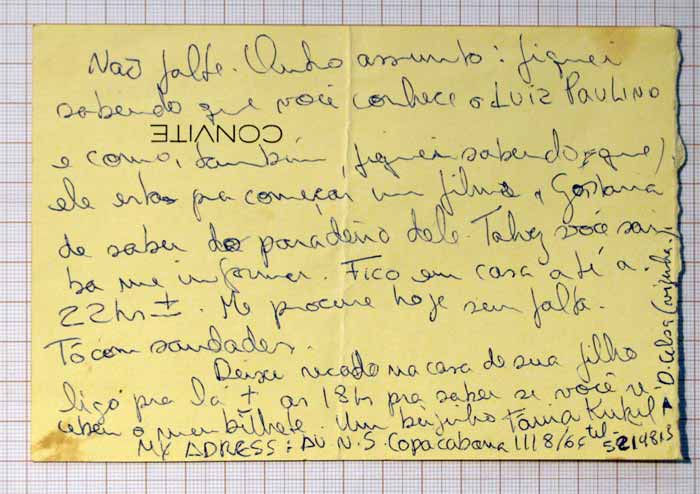 Não falte. Outro assunto: fiquei
sabendo que você conhece o LUIZ PAULINO
CONVITE
e como, também, fiquei sabendo, que
ele está pra começar um filme, Gostaria
de saber do paradeiro dele. Talvez você sai
ba me informar. Fico em casa até a.
22hs ±. Me procure hoje sem falta.
Tô com saudades.
Deixe recado na casa de sua filha
ligo pra lá ± as 18hs pra saber se você re
cebeu o meu bilhete. Um beijinho Tania
MY ADRESS: AV. N.S. Copacabana 1118/6 tel.
D. Celsa (vizinha)